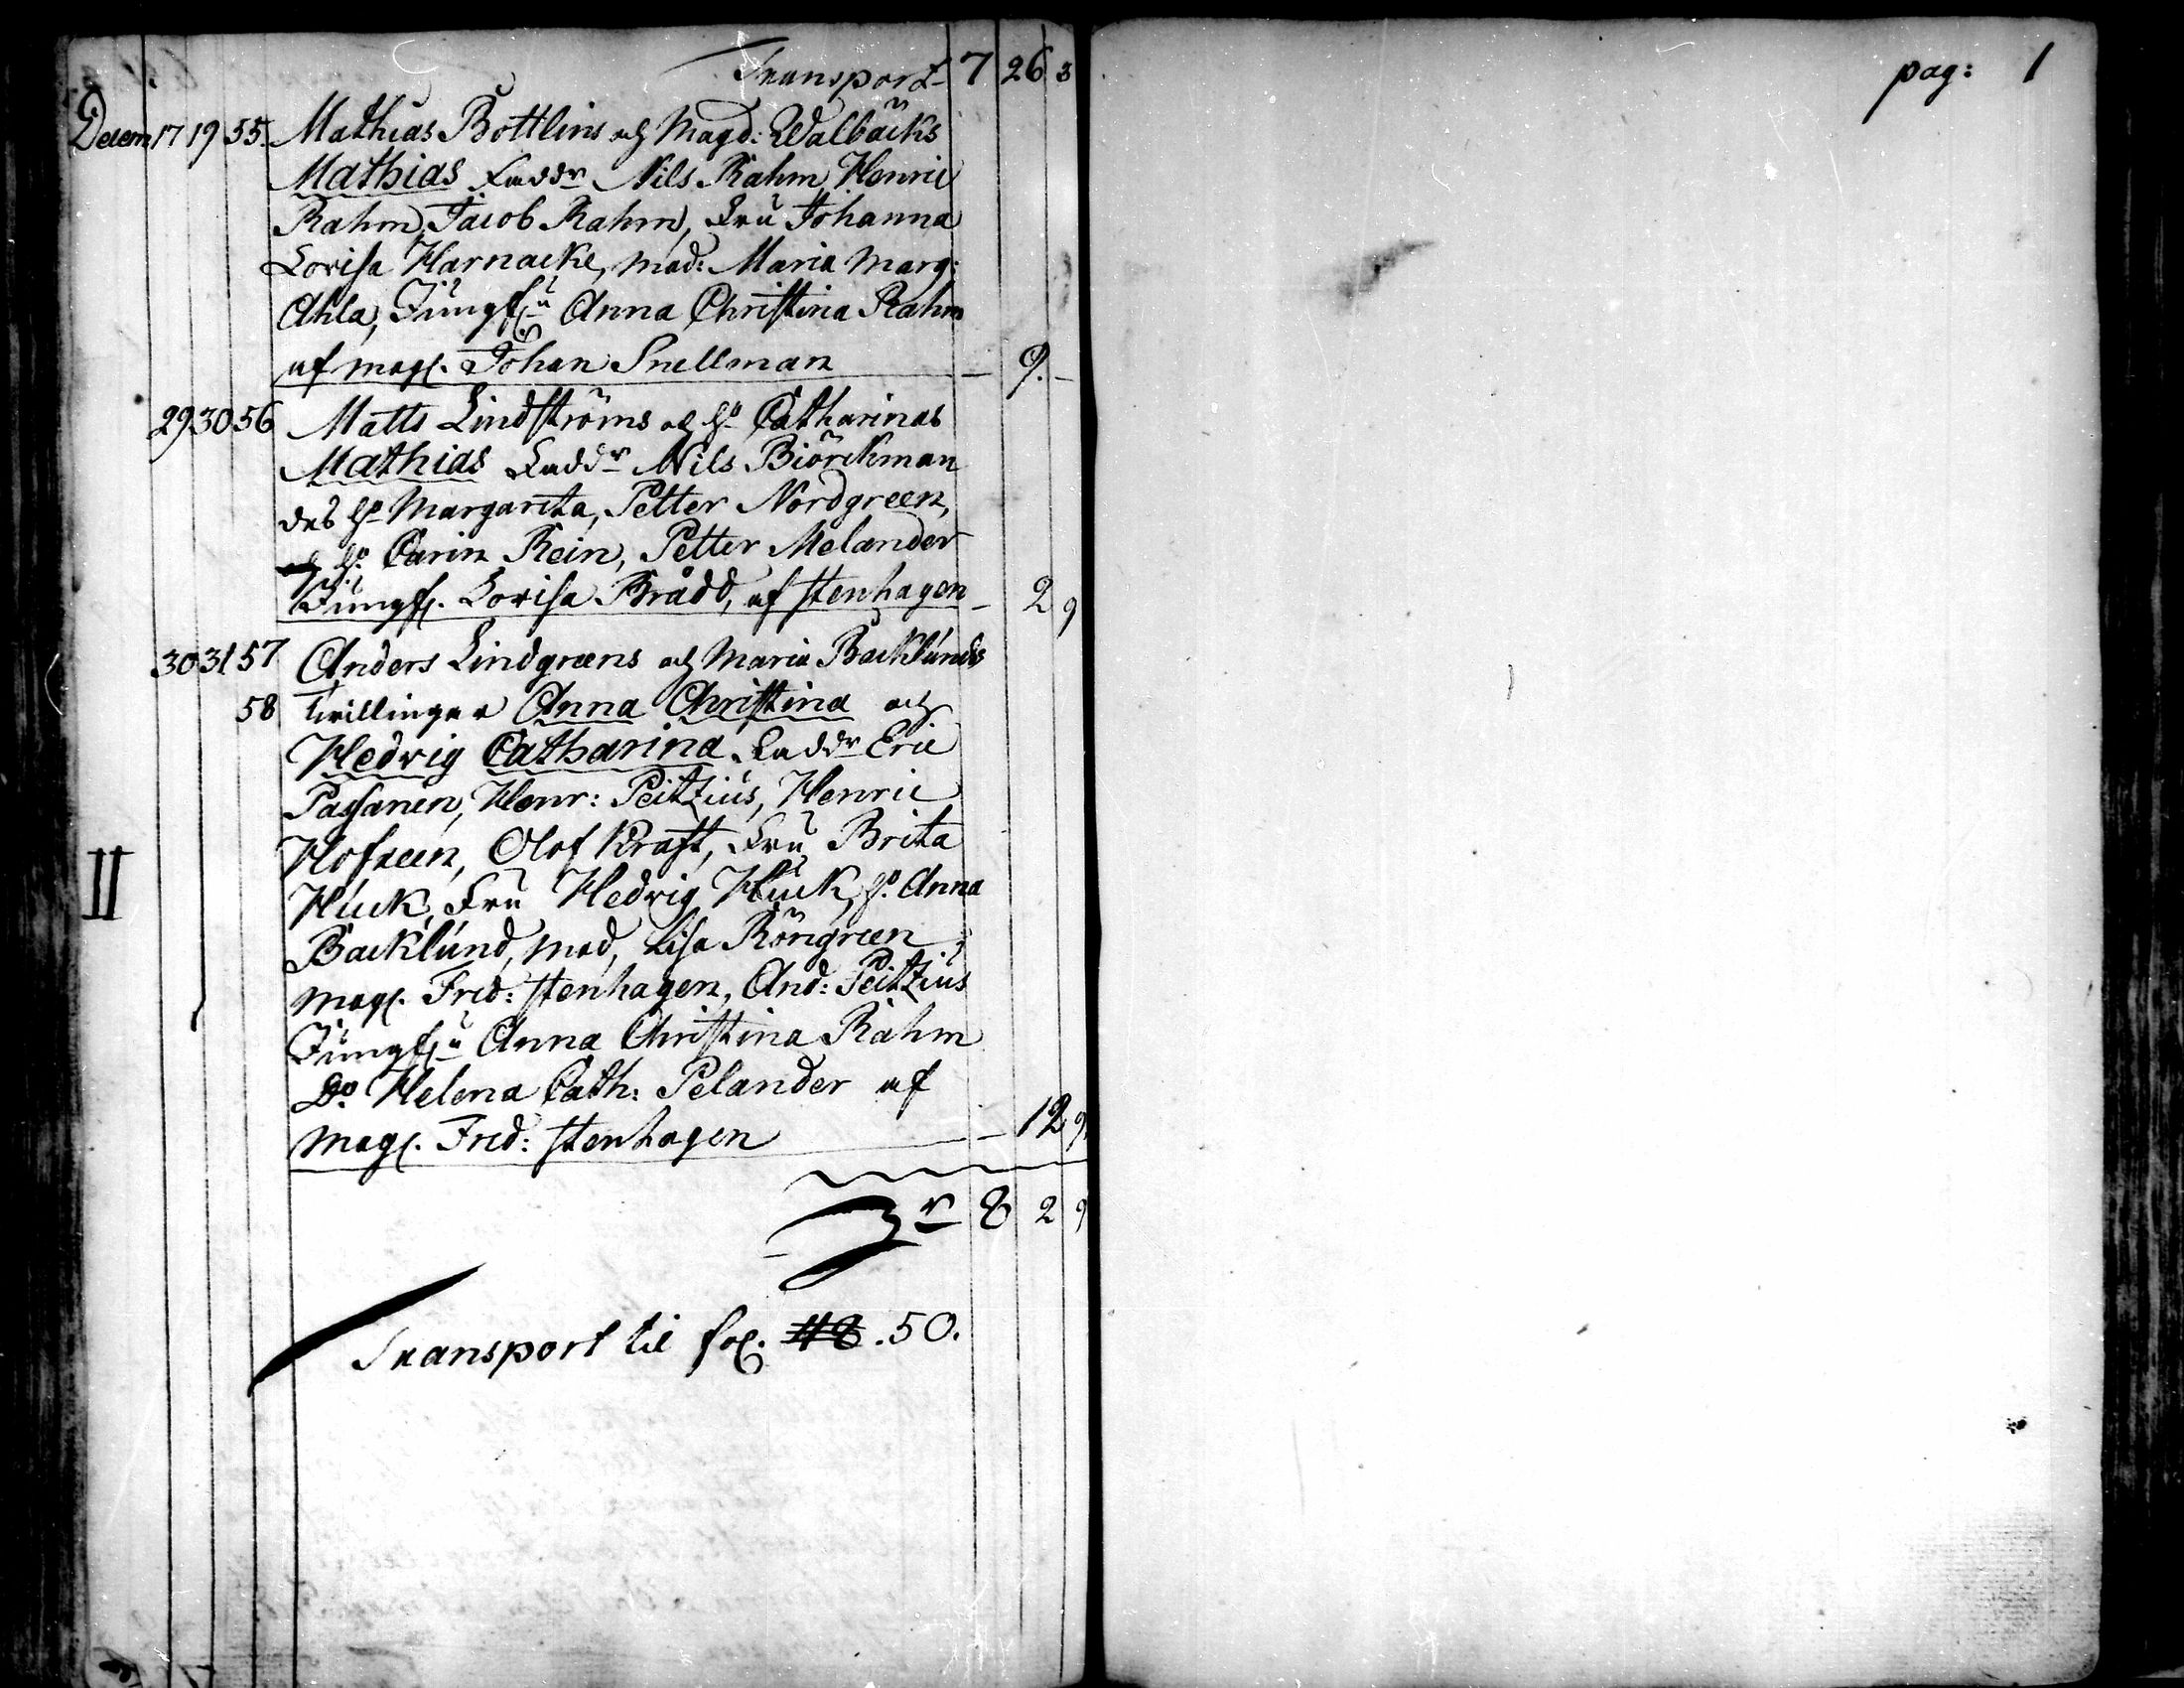 Transport 7 26 3
Decem 17 19 55. Mathias Bottlins och Magd: Walbäcks
Mathias Faddr Nils Rahm, Henric
Rahm, Jacob Rahm, Fru Johanna
Lovisa Harnacke, Mad: Maria Marg:
Ahla, Jungfru Anna Christina Rahm
af Mag. Johan Snellman — 9. —
29 30 56 Matts Lindströms och H. Catharinas
Mathias Faddr Nils Biörckman
des H. Margareta, Petter Nordgreen,
H. Carin Rein, Petter Melander
Jungf. Lovisa Brådd, af Stenhagen — 2 9
30 31 57 Anders Lindgreens och Maria Backlunds
58 Tvillingar Anna Christina och
Hedvig Catharina. Faddr Eric
Passanen, Henr: Peitzius, Henric
Hofreen, Olof Kraft, Fru Brita
Huck, Fru Hedvig Huck, H. Anna
Backlund, Mad, Lisa Röngreen
Mag. Fred: Stenhagen, And: Peitzius
Jungfru Anna Christina Rahm
Do Helena Cath: Pelander af
Mag. Fred: Stenhagen — 12 9
II
8 2 9
Transport til fol. 48. 50.
pag: 1